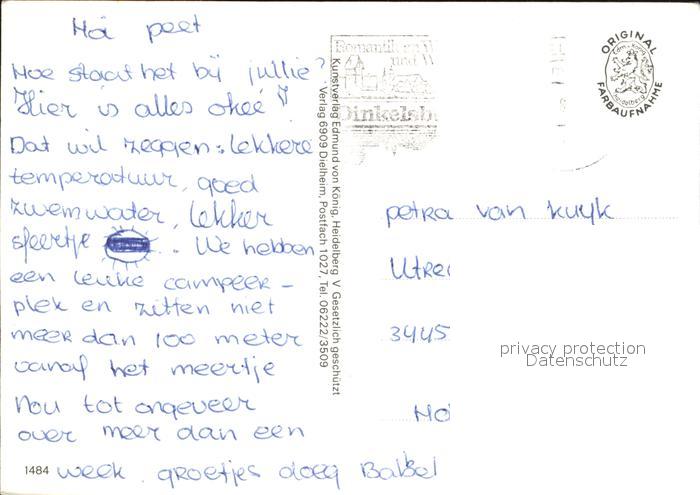 Hoi peet
Hoe staat het bij jullie?
Hier is alles oké!
Dat wil zeggen: lekkere
temperatuur, goed
zwemwater, lekker
sfeertje . We hebben
een leuke campeer-
plek en zitten niet
meer dan 100 meter
vanaf het meertje
Nou tot ongeveer
over meer dan een
week. groetjes doeg Babbel
1484
Kunstverlag Edmund von König, Heidelberg V Gesetzlich geschützt
Verlag 6909 Dielheim, Postfach 1027, Tel. 06222/3509
Romantik
und W
Dinkelsb
ORIGINAL
Edm. König
Heidelberg
FARBAUFNAHME
petra van Kuyk
Utre
3445
Ho
privacy protection
Datenschutz